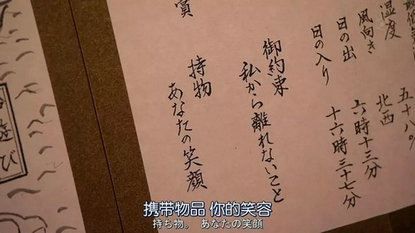 湿度
五十八
風向き
北西
日の出
六時十三分
日の入り
十六時三十七分
御約束
私から離れないこと
持物
あなたの笑顔
遊び
携带物品 你的笑容
持ち物。 あなたの笑顔